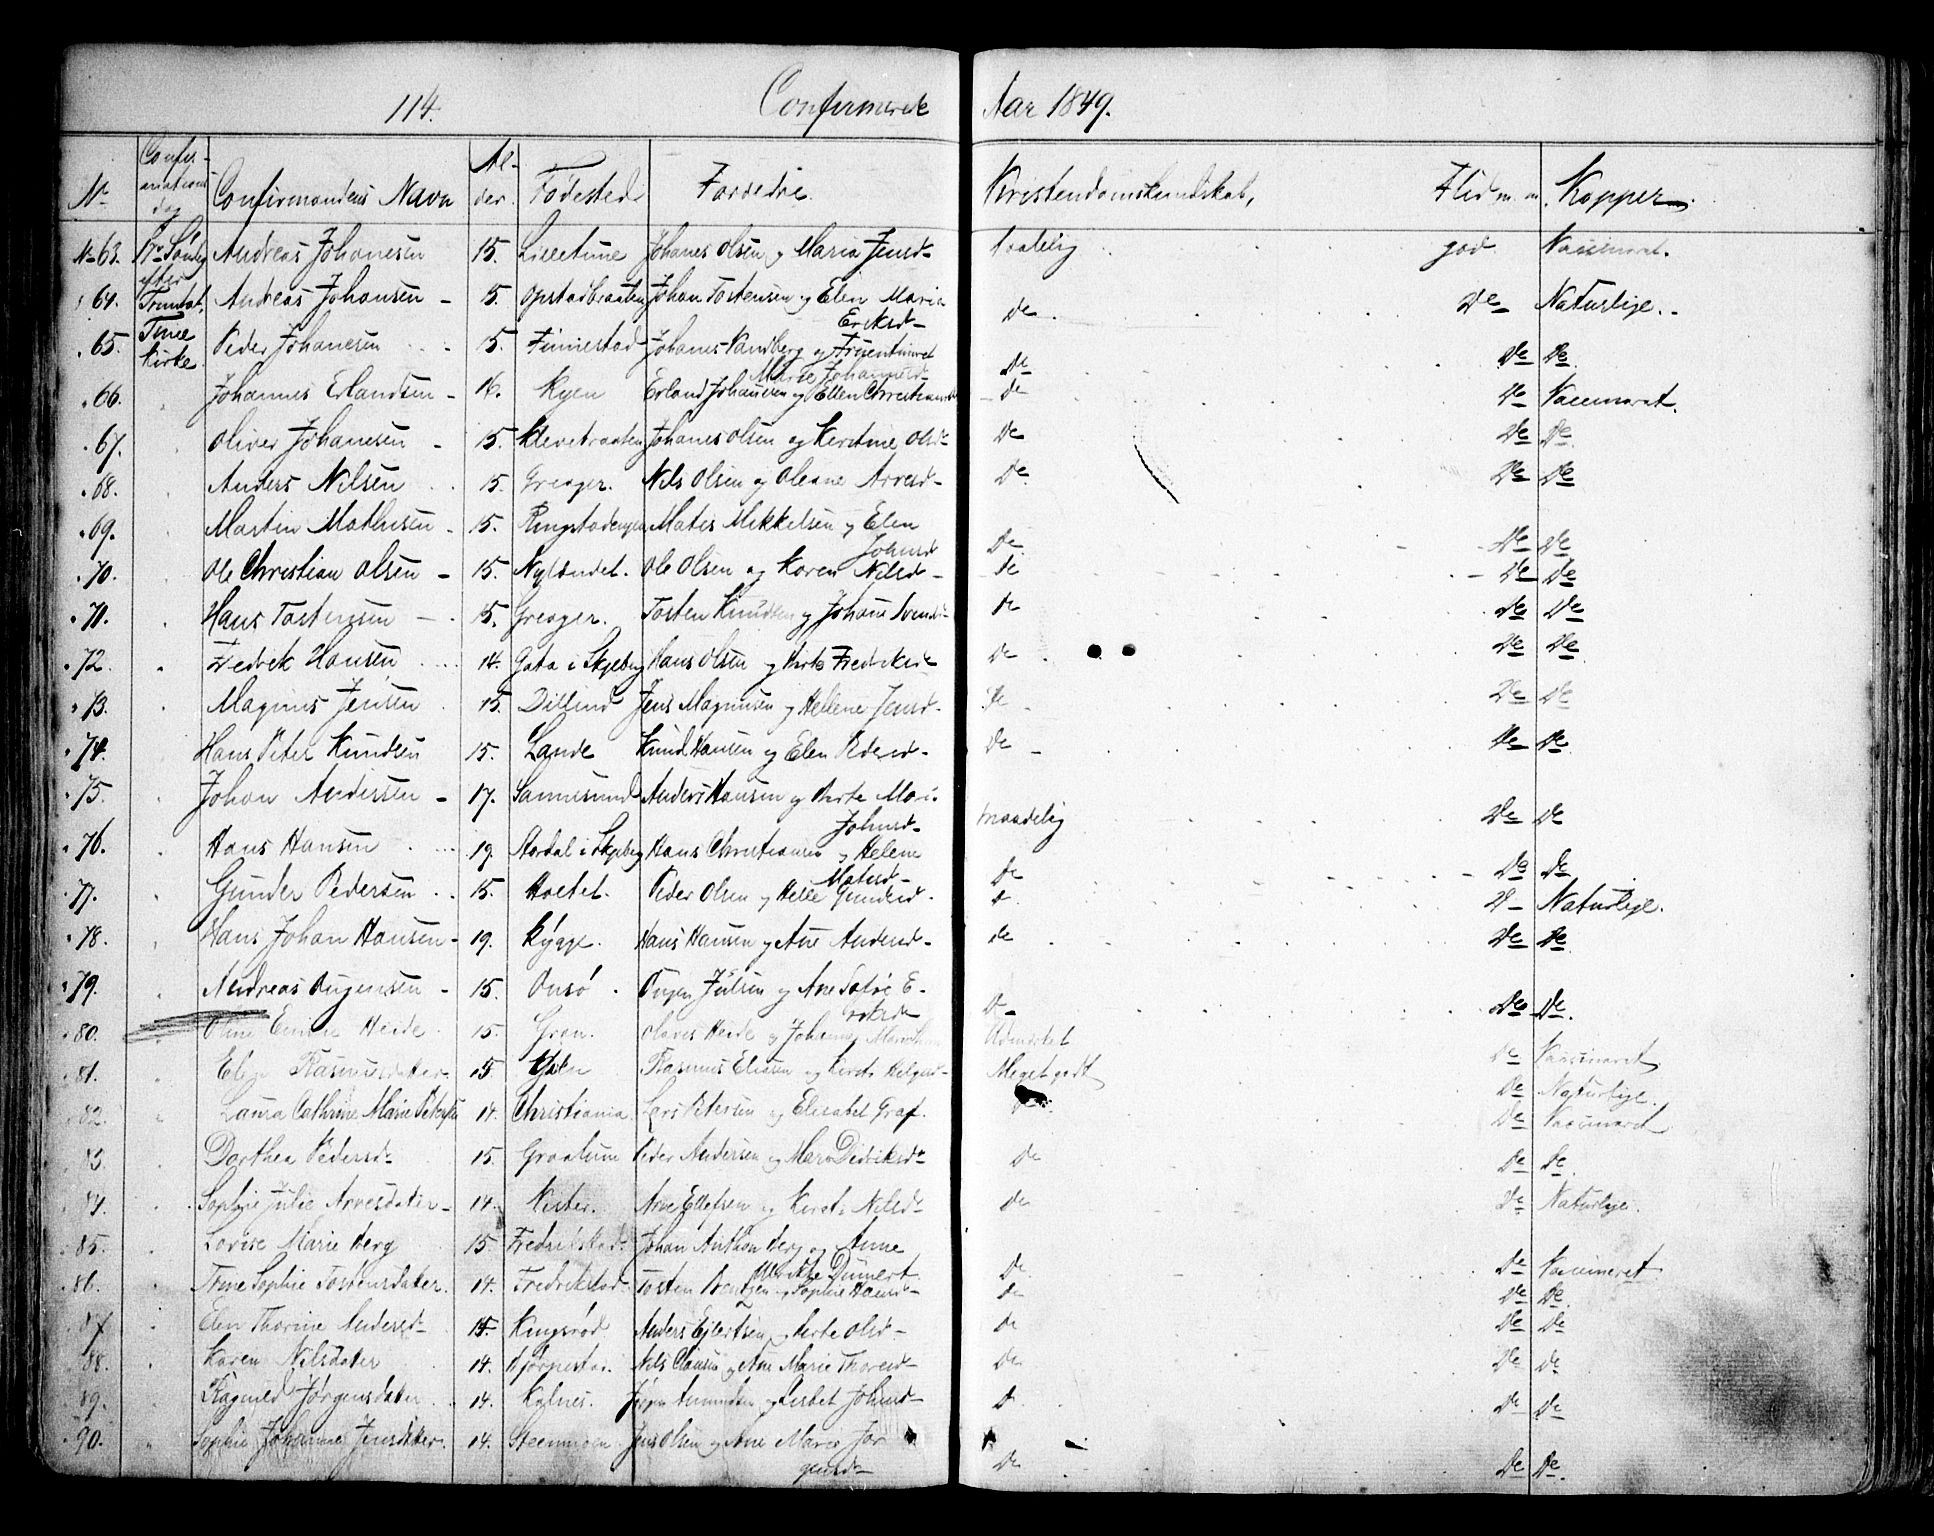 114. Confirmerede Aar 1849.
No Confirmations dag Confirmandens Navn Alder. Fødested Forældre Kristendomskundskab, Flid m. m. Kopper
No 63. Andreas Johanesen 15. Lilletune Johanes Olsen og Maria Jensd- taalelig god. Vaccineret.
64. Andreas Johansen - 15. Opstadbraaten Johan Tostensen og Elen Maria Eriksd- De De Naturlige.
65. Peder Johanesen 15. Finnestad Johanes Sandberg og Fruentimret Marie Johannesd- De De De.
Tune Kirke
66. Johannes Erlandsen - 16. Ryen Erland Johannesen og Ellen Christiansd De De Vaccineret.
67. Oliver Johanesen - 15. Klevebraaten Johanes Olsen og Kerstine Olsd- De De De.
68. Anders Nilsen 15. Greager. Nils Olsen og Oleane Arvesd- De De De
69. Martin Mathisen - 15. Ringstadengen Matis Mikkelsen og Elen Johnsd De De De
70. Ole Christian Olsen - 15. Nylændet. Ole Olsen og Karen Nilsd- De De De
71. Hans Tostensen - 15. Greager. Tosten Knudsen og Johane Svends- De De De
72. Fredrek Hansen 14. Gata i Skjeberg Hans Olsen og Berte Fredriksd De De De
73. Magnus Jensen 15. Dillind Jens Magnusen og Hellene Jensd- De De De
74. Hans Peter Knudsen 15. Lande Knud Hansen og Elen Pedersd- De De De
75. Johan Andersen - 17. Sannesund Anders Hansen og Berte Mari Johnsd- maadelig De De
76. Hans Hansen 19. Aardal i Skjeberg Hans Christiansen og Helene Matisd- De De De
77. Gunder Pedersen 15. Hoetet. Peder Olsen og Helle Gundersd. D D- Naturlige.
78. Hans Johan Hansen - 19. Rygge. Hans Hansen og Ane Andersd- De De De
79. Andreas Purgensen - 15. Onsø. Purgen Julsen og Ane Sofie E- D- De De.
80. Heide. 15. Gron. Heide og Johanne Udmerket De Vaccineret
81. Elen Rasmusdatter 15 Rasmus Eliasen og Kersti Helgesd- Meget godt De Naturlige.
82. Laura Cathrine Marie Petersen 14. Christiania. Lars Petersen og Elisabet Graf. De Vaccineret
83 Dorthea Pedersd- 15. Graalum Peder Andersen og Mari Didriksd- De De De.
84. Sophie Julie Arvesdatter - 14. Kister. Arve Ellefsen og Kersti Nilsd- De De Naturlige.
85. Lovise Marie Berg 15. Fredrikstad. Johan Anthon Berg og Anne Ulrikke Dunert De De Vaccineret
86. Trine Sophie Tostensdatter. 14. Fredrikstad. Tosten Berntzen og Sophie Hansd- De De De.
87 Elen Thorine Andersd- 14. Kingsrød Anders Ejlertsen og Berte Olsd- De De De
88. Karen Nilsdatter 14. Bjørnestad. Nils Clausen og Ane Marie Thoresd- De De De
89. Ragnild Jørgensdatter 14. Kalnes. Jørgen Amundsen og Lisbet Johnsd- D. De De.
90. Sophie Johanne Jensdatter. 14. Steenmoen Jens Olsen og Ane Marie Jørgensd- De De De.